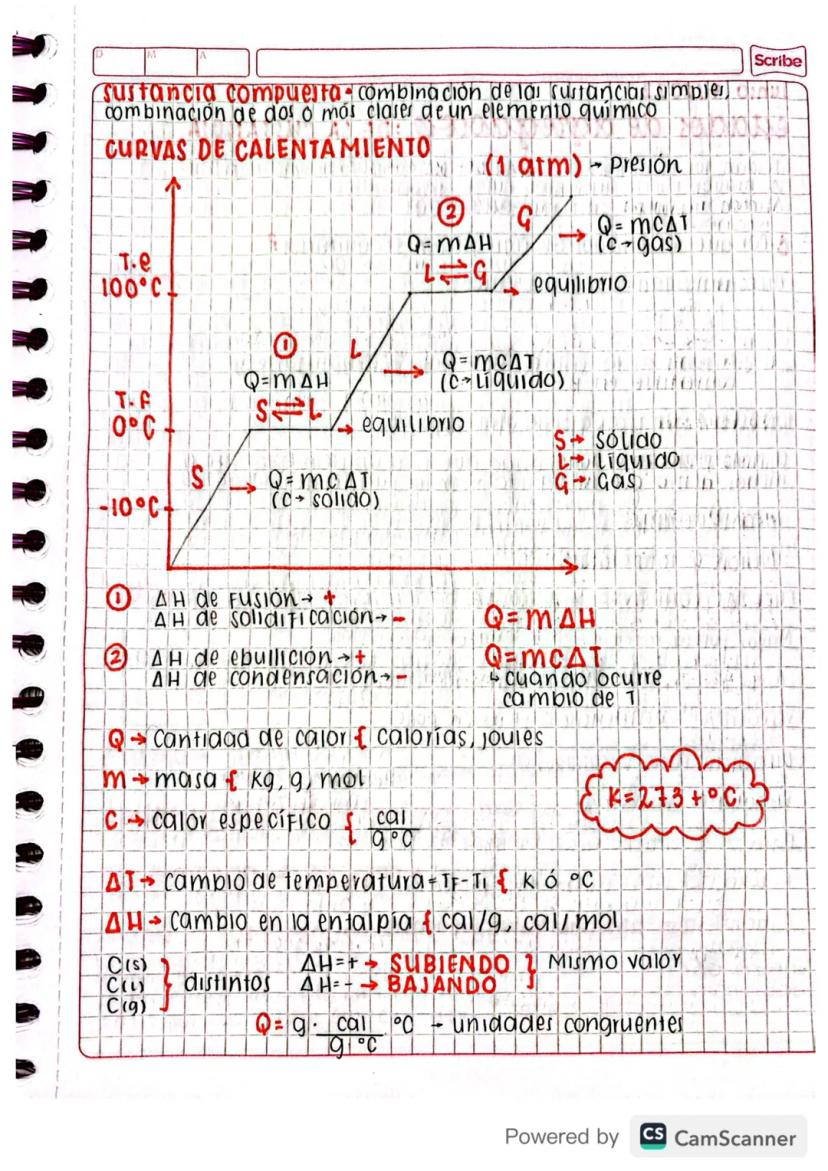 D M A
Scribe
sustancia compuesta- combinación de las sustancias simples,
combinación de dos ó más clases de un elemento químico
CURVAS DE CALENTAMIENTO
(1 atm) → Presión
②
G
Q=mΔH
Q= mCΔT
(C→gas)
T.e
L⇌G
100°C
→ equilibrio
①
L
Q=mΔH
→ Q= mCΔT
(C→líquido)
T.F
S⇌L
0°C
→ equilibrio
S→ Sólido
L→ líquido
G→ Gas
S
→ Q= mC ΔT
(C→ sólido)
-10°C
① ΔH de Fusión→ +
ΔH de solidificación→ -
Q= m ΔH
② ΔH de ebullición →+
ΔH de condensación→ -
Q= mcΔT
↳ cuando ocurre
cambio de T
Q → Cantidad de calor { calorías, joules
m → masa { Kg, g, mol
K= 273 + °C
C → calor específico { cal
g°C
ΔT→ Cambio de temperatura = TF-Ti { K ó °C
ΔH→ Cambio en la entalpía { cal/g, cal/mol
C(s)
C(l) } distintos
C(g)
ΔH=+ → SUBIENDO } Mismo valor
ΔH=- → BAJANDO
Q= g · cal °C → unidades congruentes
g °C
Powered by CS CamScanner